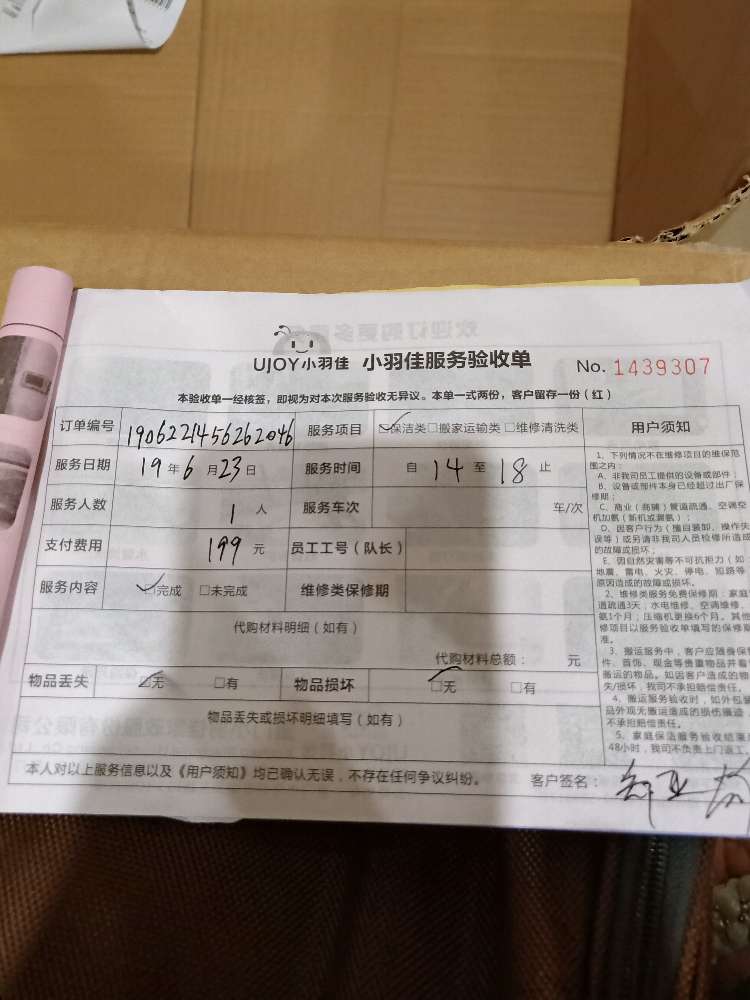 UJOY小羽佳 小羽佳服务验收单 No. 1439307
本验收单一经核签，即视为对本次服务验收无异议。本单一式两份，客户留存一份（红）
订单编号 1906221456262046 服务项目 ☑保洁类□搬家运输类 □维修清洗类 用户须知
服务日期 19年6月23日 服务时间 自 14 至 18 止
服务人数 1 人 服务车次 车/次
支付费用 199 元 员工工号（队长）
服务内容 ☑完成 □未完成 维修类保修期
代购材料明细（如有）
代购材料总额： 元
物品丢失 ☑无 □有 物品损坏 ☑无 □有
物品丢失或损坏明细填写（如有）
本人对以上服务信息以及《用户须知》均已确认无误，不存在任何争议纠纷。 客户签名：
1、下列情况不在维修项目的维保范
围之内：
A、非我司员工提供的设备或部件；
B、设备或部件本身已经超过出厂保
修期；
C、商业（商铺）管道疏通、空调空
机加氨（新机或漏氨）；
D、因客户行为（擅自装卸、操作失
误等）或另请非我司人员检修所造成
的故障或损坏；
E、因自然灾害等不可抗拒力（如
地震、雷电、火灾、停电、短路等
原因造成的故障或损坏。
2、维修类服务免费保修期：家庭
道疏通3天；水电维修、空调维修、
氨1个月；压缩机更换6个月。其他
修项目以服务验收单填写的保修期
准。
3、搬运服务中，客户应随身保管
件、首饰、现金等贵重物品并看
搬运的物品。如因客户造成的物
失/损坏，我司不承担赔偿责任。
4、搬运服务验收时，如外包装
品外观无搬运造成的损伤痕迹
不承担赔偿责任。
5、家庭保洁服务验收结束后
48小时，我司不负责上门返工。